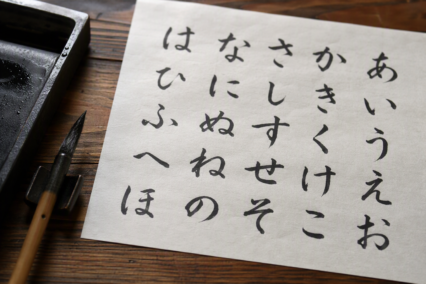 あいうえお
かきくけこ
さしすせそ
なにぬねの
はひふへほ